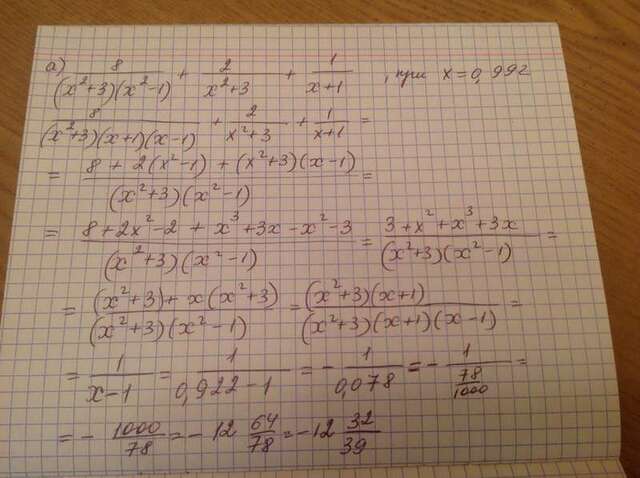 а) 8/((x²+3)(x²-1)) + 2/(x²+3) + 1/(x+1) , при x=0,992
8/((x²+3)(x+1)(x-1)) + 2/(x²+3) + 1/(x+1) =
= (8 + 2(x²-1) + (x²+3)(x-1))/((x²+3)(x²-1)) =
= (8+2x²-2 + x³+3x-x²-3)/((x²+3)(x²-1)) = (3+x²+x³+3x)/((x²+3)(x²-1)) =
= ((x²+3)+x(x²+3))/((x²+3)(x²-1)) = ((x²+3)(x+1))/((x²+3)(x+1)(x-1)) =
= 1/(x-1) = 1/(0,922-1) = -1/(0,078) = -1/(78/1000) =
= -1000/78 = -12 64/78 = -12 32/39